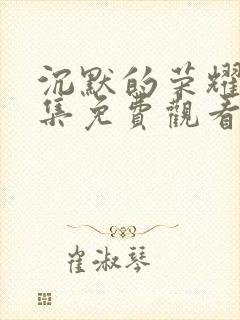 沉默的荣耀
集免費觀看
崔淑琴